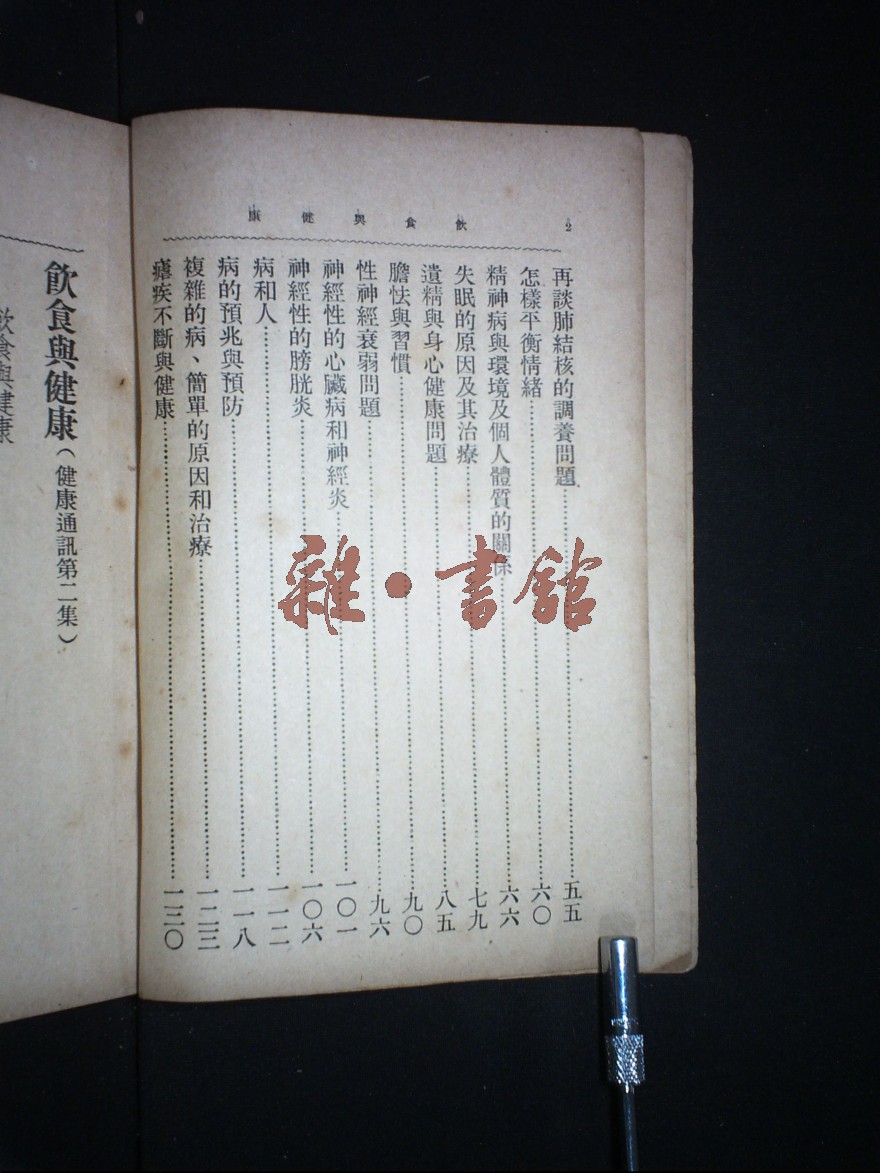 飲食與健康 2
再談肺結核的調養問題……五五
怎樣平衡情緒……六〇
精神病與環境及個人體質的關係……六六
失眠的原因及其治療……七九
遺精與身心健康問題……八五
膽怯與習慣……九〇
性神經衰弱問題……九六
神經性的心臟病和神經炎……一〇一
神經性的膀胱炎……一〇六
病和人……一一二
病的預兆與預防……一一八
複雜的病、簡單的原因和治療……一二三
瘧疾不斷與健康……一三〇
飲食與健康（健康通訊第二集）
飲食與健康
雜·書館